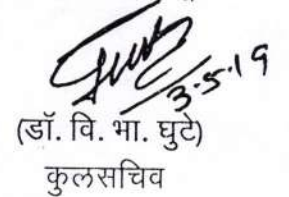 3-5-19
(डॉ. वि. भा. घुटे)
कुलसचिव